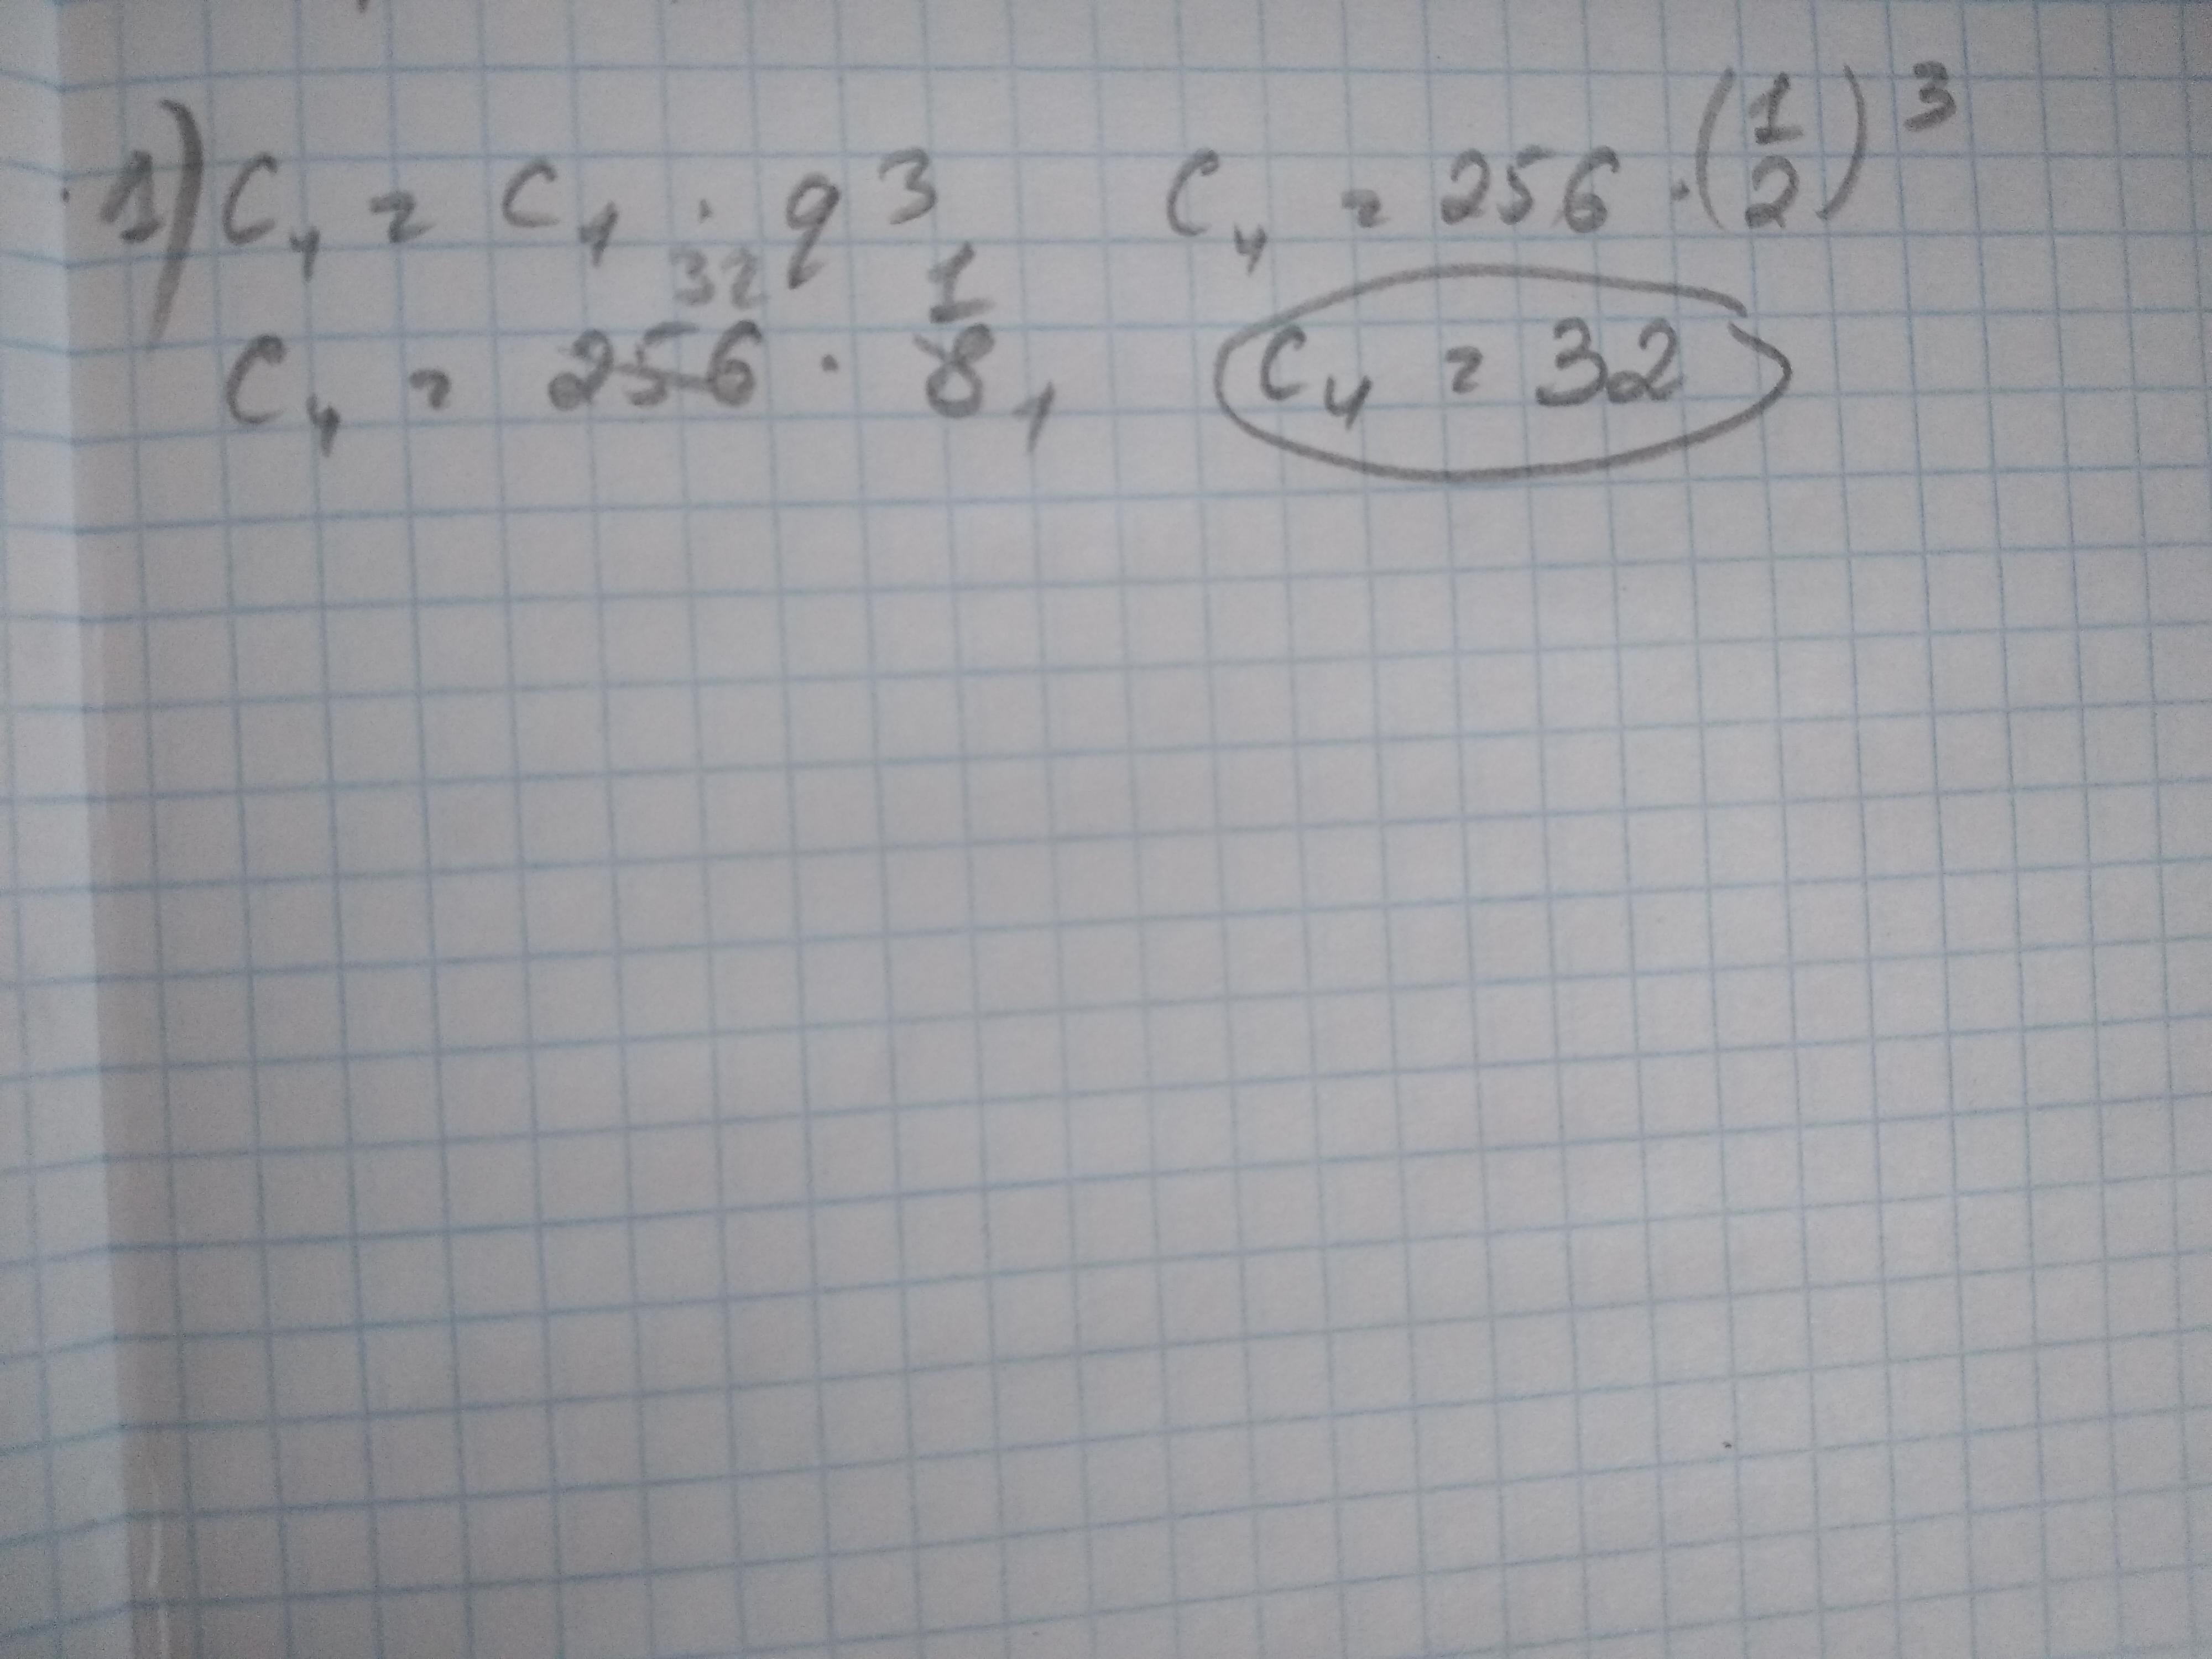 1) C₄ = C₁ · q³ C₄ = 256 · (1/2)³
C₄ = 256 32 · 1/8 1 C₄ = 32